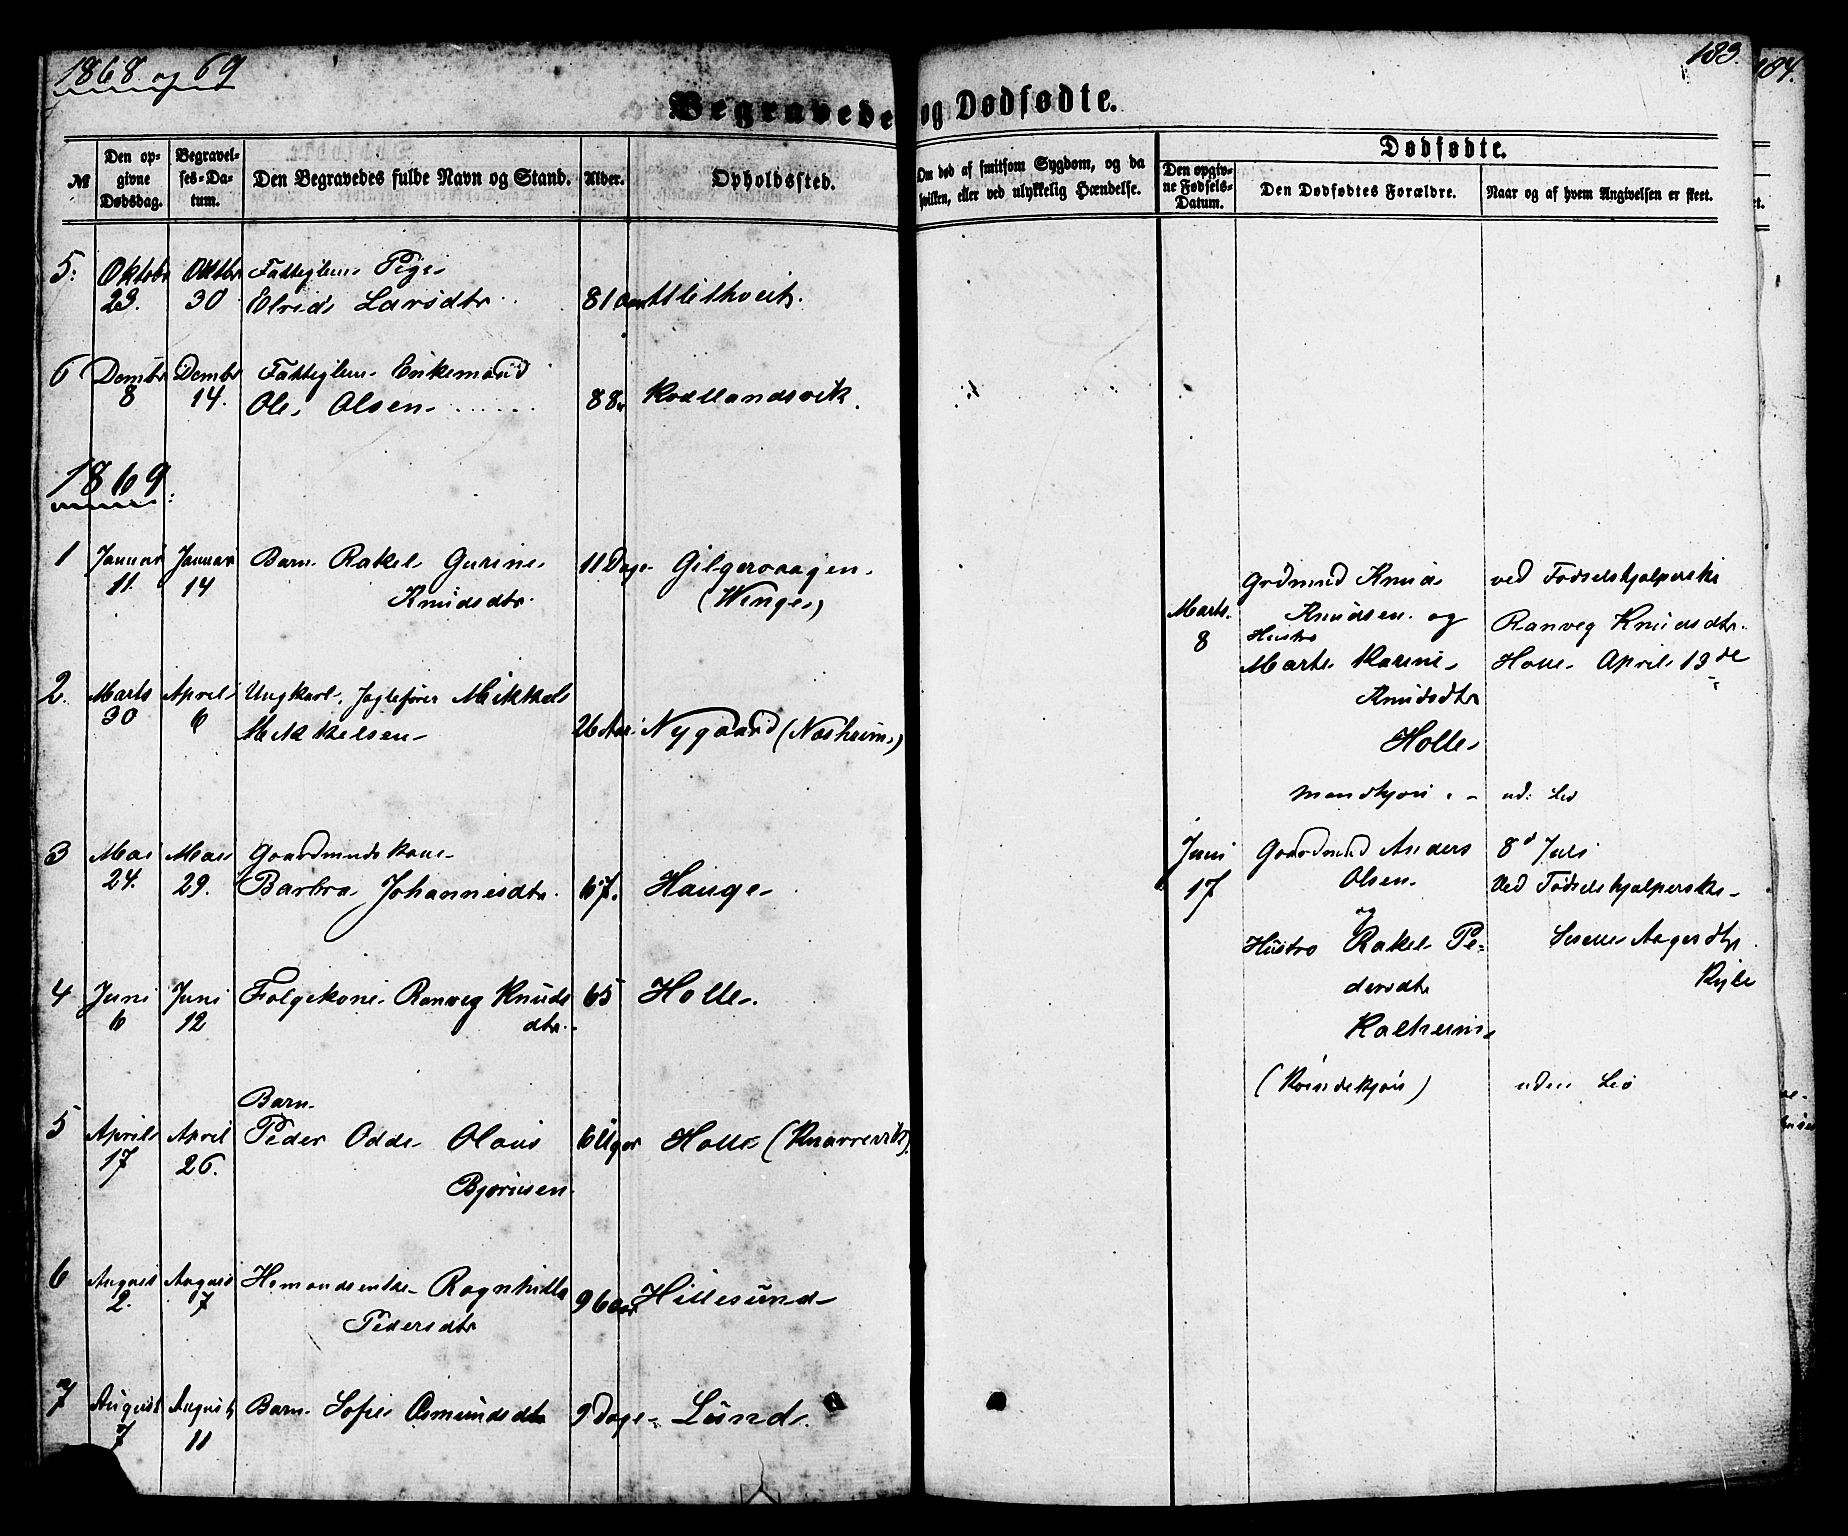 1868 og 69
183.
184.
Begravede og Dødfødte.
№
Den opgivne Dødsdag.
Begravelses-Datum.
Den Begravedes fulde Navn og Stand.
Alder.
Opholdssted.
Om død af smitsom Sygdom, og da hvilken, eller ved ulykkelig Hændelse.
Dødfødte.
Den opgivne Fødsels-Datum.
Den Dødfødtes Forældre.
Naar og af hvem Angivelsen er skeet.
5. Oktobr 23. Oktbr 30 Fattiglem Pige
Elrids Larsdtr 81 Aar
6 Dembr 8 Dembr 14. Fattiglem Enkemand
Ole Olsen 88 Kodlandsvik.
1869
1 Januar 11. Januar 14 Barn Rakel Gurine
Knudsdtr. 11 Dage Gilgeraagen
(Wenge)
2. Marts 30 April 6 Ungkarl, Mikkel
Mikkelsen 26 Aar Nygaard (Nøsheim)
3 Mai 24. Mai 29. Gaardmandskone
Barbra Johannesdtr. 67. Hauge
4 Juni 6 Juni 12 Følgekone Ranveg Knuds
dtr. 65 Holle.
5 April 17 April 26. Barn
Peder Odde Olaus
Bjørnsen 6 Uger Holle (Knarrevik).
6 August 2. August 7 Ragnhilde
Pedersdtr 96 Aar Hillesund
7 August 7 August 11 Barn Sofie Osmundsdtr 9 Dage Lund.
Marts. 8
Gudmund Knud
Knudsen og
Hustro
Marte Karine
Knudsdtr
Holle
Mandkjøn
ved Fødselshjælperske
Ranveg Knudsdtr.
Holle April 13de
ud: Liv
Juni 17
Gaardmand Anders
Olsen
og
Hustro Rakel Pe-
dersdtr
(Kvindekjøn)
8d Juli
Ved Fødselshjælperske
Aagesdtr
uden Liv